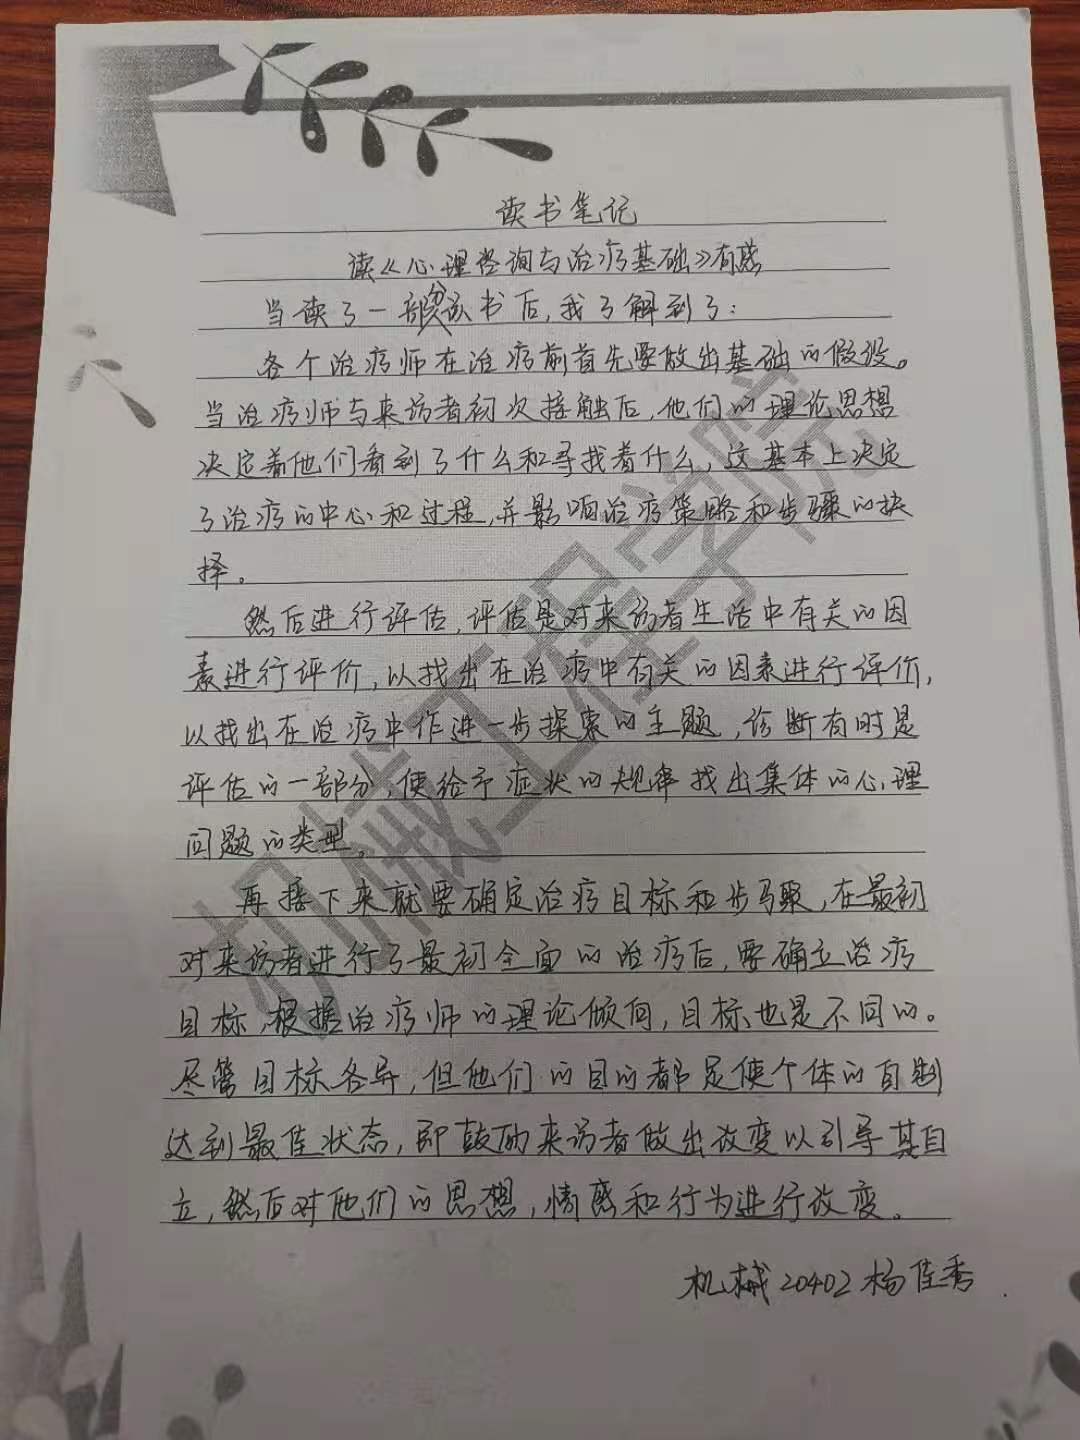 读书笔记
读《心理咨询与治疗基础》有感
当读了一部分该书后，我了解到了：
各个治疗师在治疗前首先要做出基础的假设。
当治疗师与来访者初次接触后，他们的理论思想
决定着他们看到了什么和寻找着什么，这基本上决定
了治疗的中心和过程，并影响治疗策略和步骤的抉
择。
然后进行评估，评估是对来访者生活中有关的因
素进行评价，以找出在治疗中有关的因素进行评价，
以找出在治疗中作进一步探索的主题，诊断有时是
评估的一部分，便给予症状的规律找出集体的心理
问题的类型。
再接下来就要确定治疗目标和步骤，在最初
对来访者进行了最初全面的治疗后，要确立治疗
目标，根据治疗师的理论倾向，目标也是不同的。
尽管目标各异，但他们的目的都是使个体的自制
达到最佳状态，即鼓励来访者做出改变以引导其自
立，然后对他们的思想，情感和行为进行改变。
机械20402 杨佳秀
机械工程学院